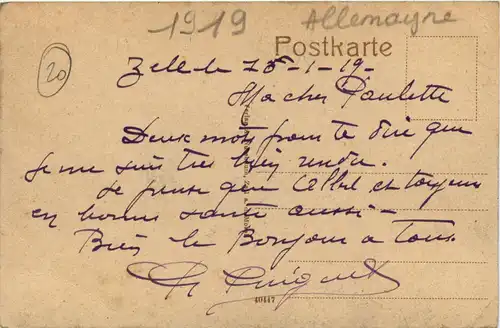 1919
Allemagne
Postkarte
20
Zell le 25-1-19-
Ma cher Paulette
Deux mot pour te dire que
je me suis tres bien rendu.
Je pense que et toujour
en bonne sante aussi -
Bien le Bonjour a tous.
40447